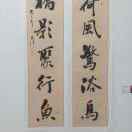 荷風驚浴鳥
橋影聚行魚